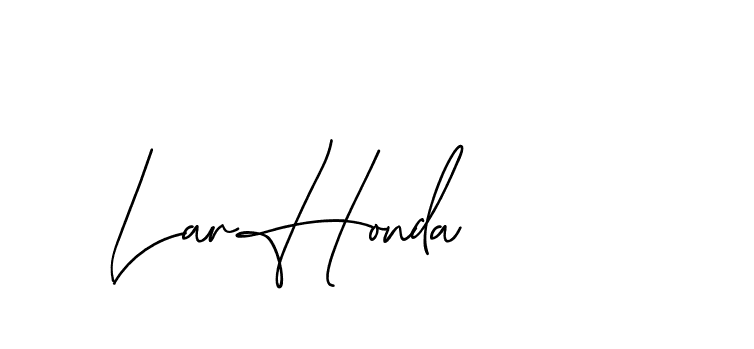 Lar Honda